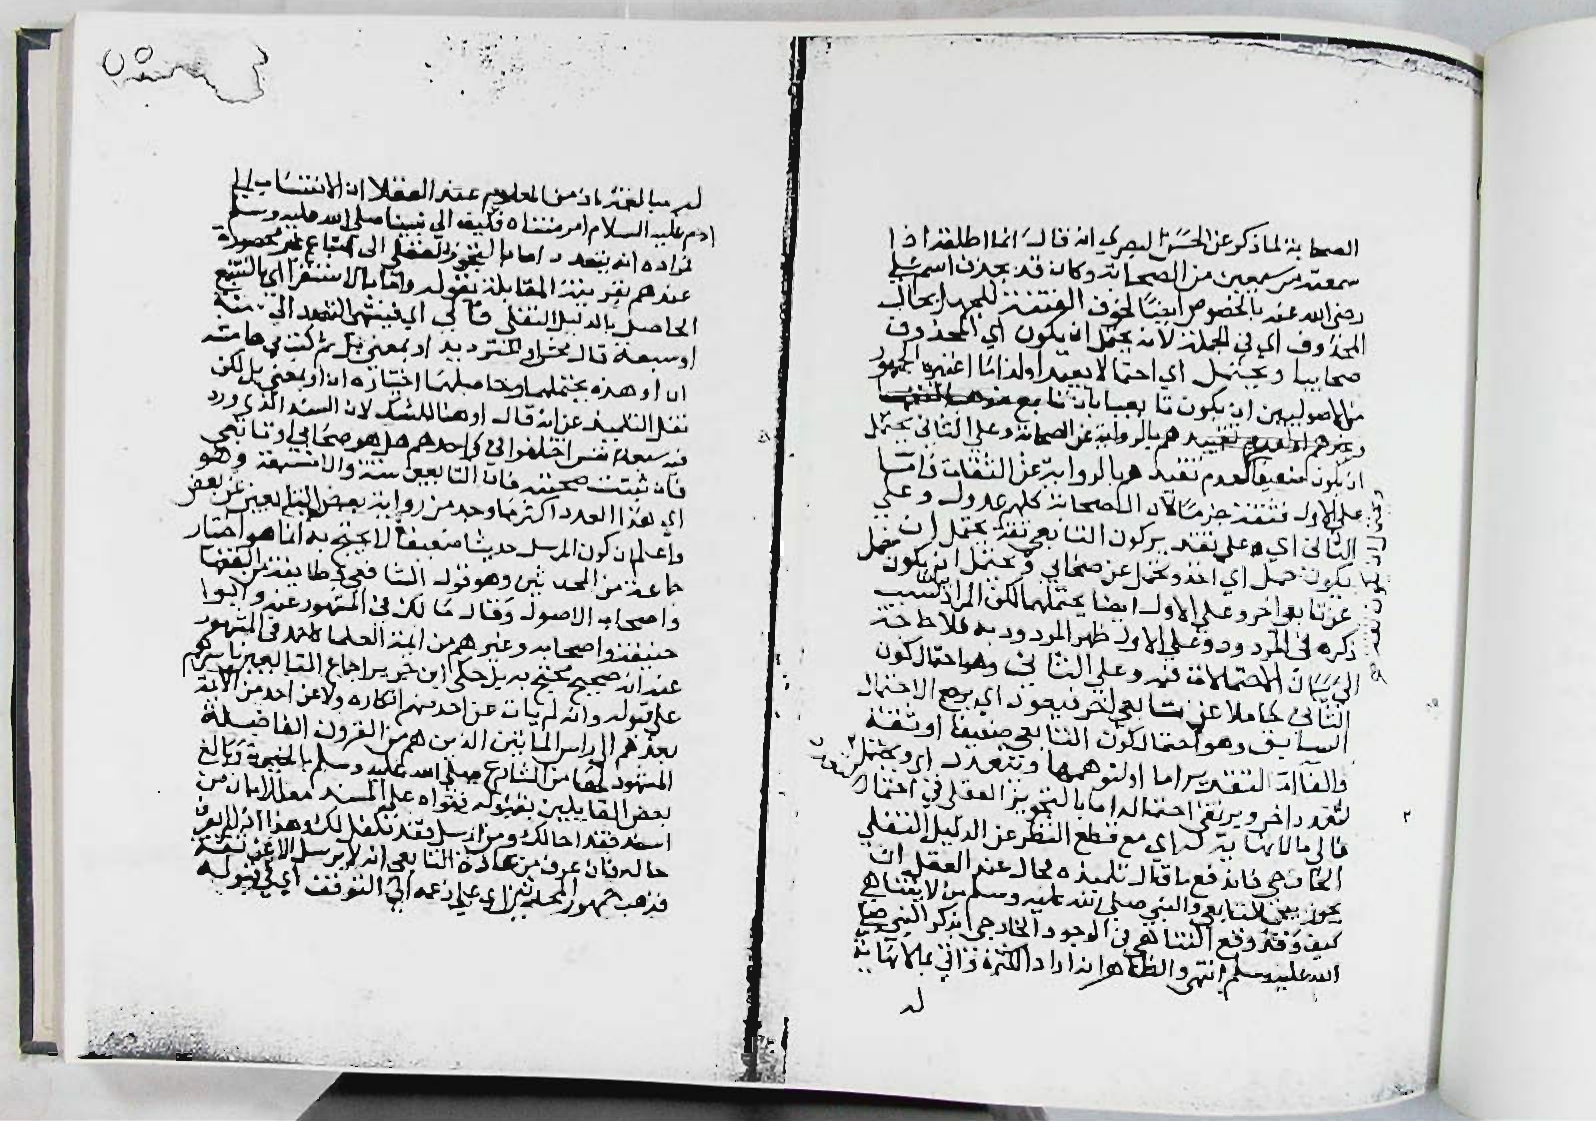 الصحابة لما ذكر عن الحسن البصري انه قال انما اطلقه اذا
سمعته من سبعين من الصحابة وكان قد يحذف اسم علي
رضي الله عنه بالخصوص ايضا لخوف الفتنة للجهل بحال
المحذوف اي في الجملة لانه يحتمل ان يكون اي المحذوف
صحابيا ويحتمل اي احتمالا بعيدا
من الاصوليين ان يكون تابعيا بان تابع
وغيرهم لعدم تقييدهم بالرواية عن الصحابة وعلى الثاني يحتمل
ان يكون ضعيفا لعدم تقيدهم بالرواية عن الثقات فاما
على الاول فثقة جزما لان الصحابة كلهم عدول وعلى
الثاني اي وعلى تقدير كون التابعي ثقة يحتمل ان
يكون حمل اي اخذ وتحمل عن صحابي ويحتمل ان يكون حمل
عن تابعي اخر وعلى الاول ايضا يحتملهما لكن المراد
ذكره في المردود وعلى الاول ظهر المردودية فلا حاجة
الى بيان الاحتمالات فيه وعلى الثاني وهو احتمال كون
الثاني حاملا عن تابعي اخر فيعود اي يرجع الاحتمال
السابق وهو احتمال كون التابعي ضعيفا او ثقة
ويتعدد اي ويحتمل
تعدد اخر ويرتقي احتماله اما بالتجويز العقلي في احتمال
فالي ما لا نهاية له اي مع قطع النظر عن الدليل النقلي
الخارجي فاندفع ما قال تلميذه محال عند العقل ان
يجوز بين التابعي والنبي صلى الله عليه وسلم من لا يتناهى
كيف وقد وقع التناهي في الوجود الخارجي بذكر النبي صلى
الله عليه وسلم انتهى والظاهر انه اراد الكثرة فاتى بما لا نهاية
له
له مبالغة فان من المعلوم عند العقلا ان الانتساب الى
ادم عليه السلام امر متناه فكيف الى نبينا صلى الله عليه وسلم
فمراده انه يتعدد اما بالتجويز العقلي الى غير محصورة
عندهم بقرينة المقابلة بقوله واما بالاستقراء اي بالتتبع
الحاصل بالدليل النقلي فالى اي فينتهي التعدد الى ستة
او سبعة قال او للترديد او بمعنى بل ثم كتب في هامشه
ان او هذه يحتملهما وحاصلهما اختياره ان او بمعنى بل لكن
نقل التلميذ عنه انه قال او هنا للشك لان السند الذي ورد
فيه سبعة انفس اختلفوا في احدهم هل هو صحابي او تابعي
فان ثبتت صحبته فان التابعين ستة والا فسبعة وهو
اي هذا العدد اكثر ما وجد من رواية بعض التابعين عن بعض
واعلم ان كون المرسل حديثا ضعيفا لا يحتج به انما هو اختيار
جماعة من المحدثين وهو قول الشافعي وطايفة من الفقها
واصحاب الاصول وقال مالك في المشهور عنه وابو
حنيفة واصحابه وغيرهم من ايمة العلما كاحمد في المشهور
عنه انه صحيح محتج به بل حكى ابن جرير اجماع التابعين باسرهم
على قبوله وانه لم يات عن احد منهم انكاره ولا عن احد من الايمة
بعدهم الى راس المائتين الذين هم من القرون الفاضلة
المشهود لها من الشارع صلى الله عليه وسلم بالخيرية وبالغ
بعض القايلين بقبوله فقواه على المسند معللا بان من
اسند فقد احالك ومن ارسل فقد تكفل لك وهذا اذا لم يعرف
حاله فان عرف من عادة التابعي انه لا يرسل الا عن ثقة
فذهب جمهور المحدثين الى التوقف اي في قبوله